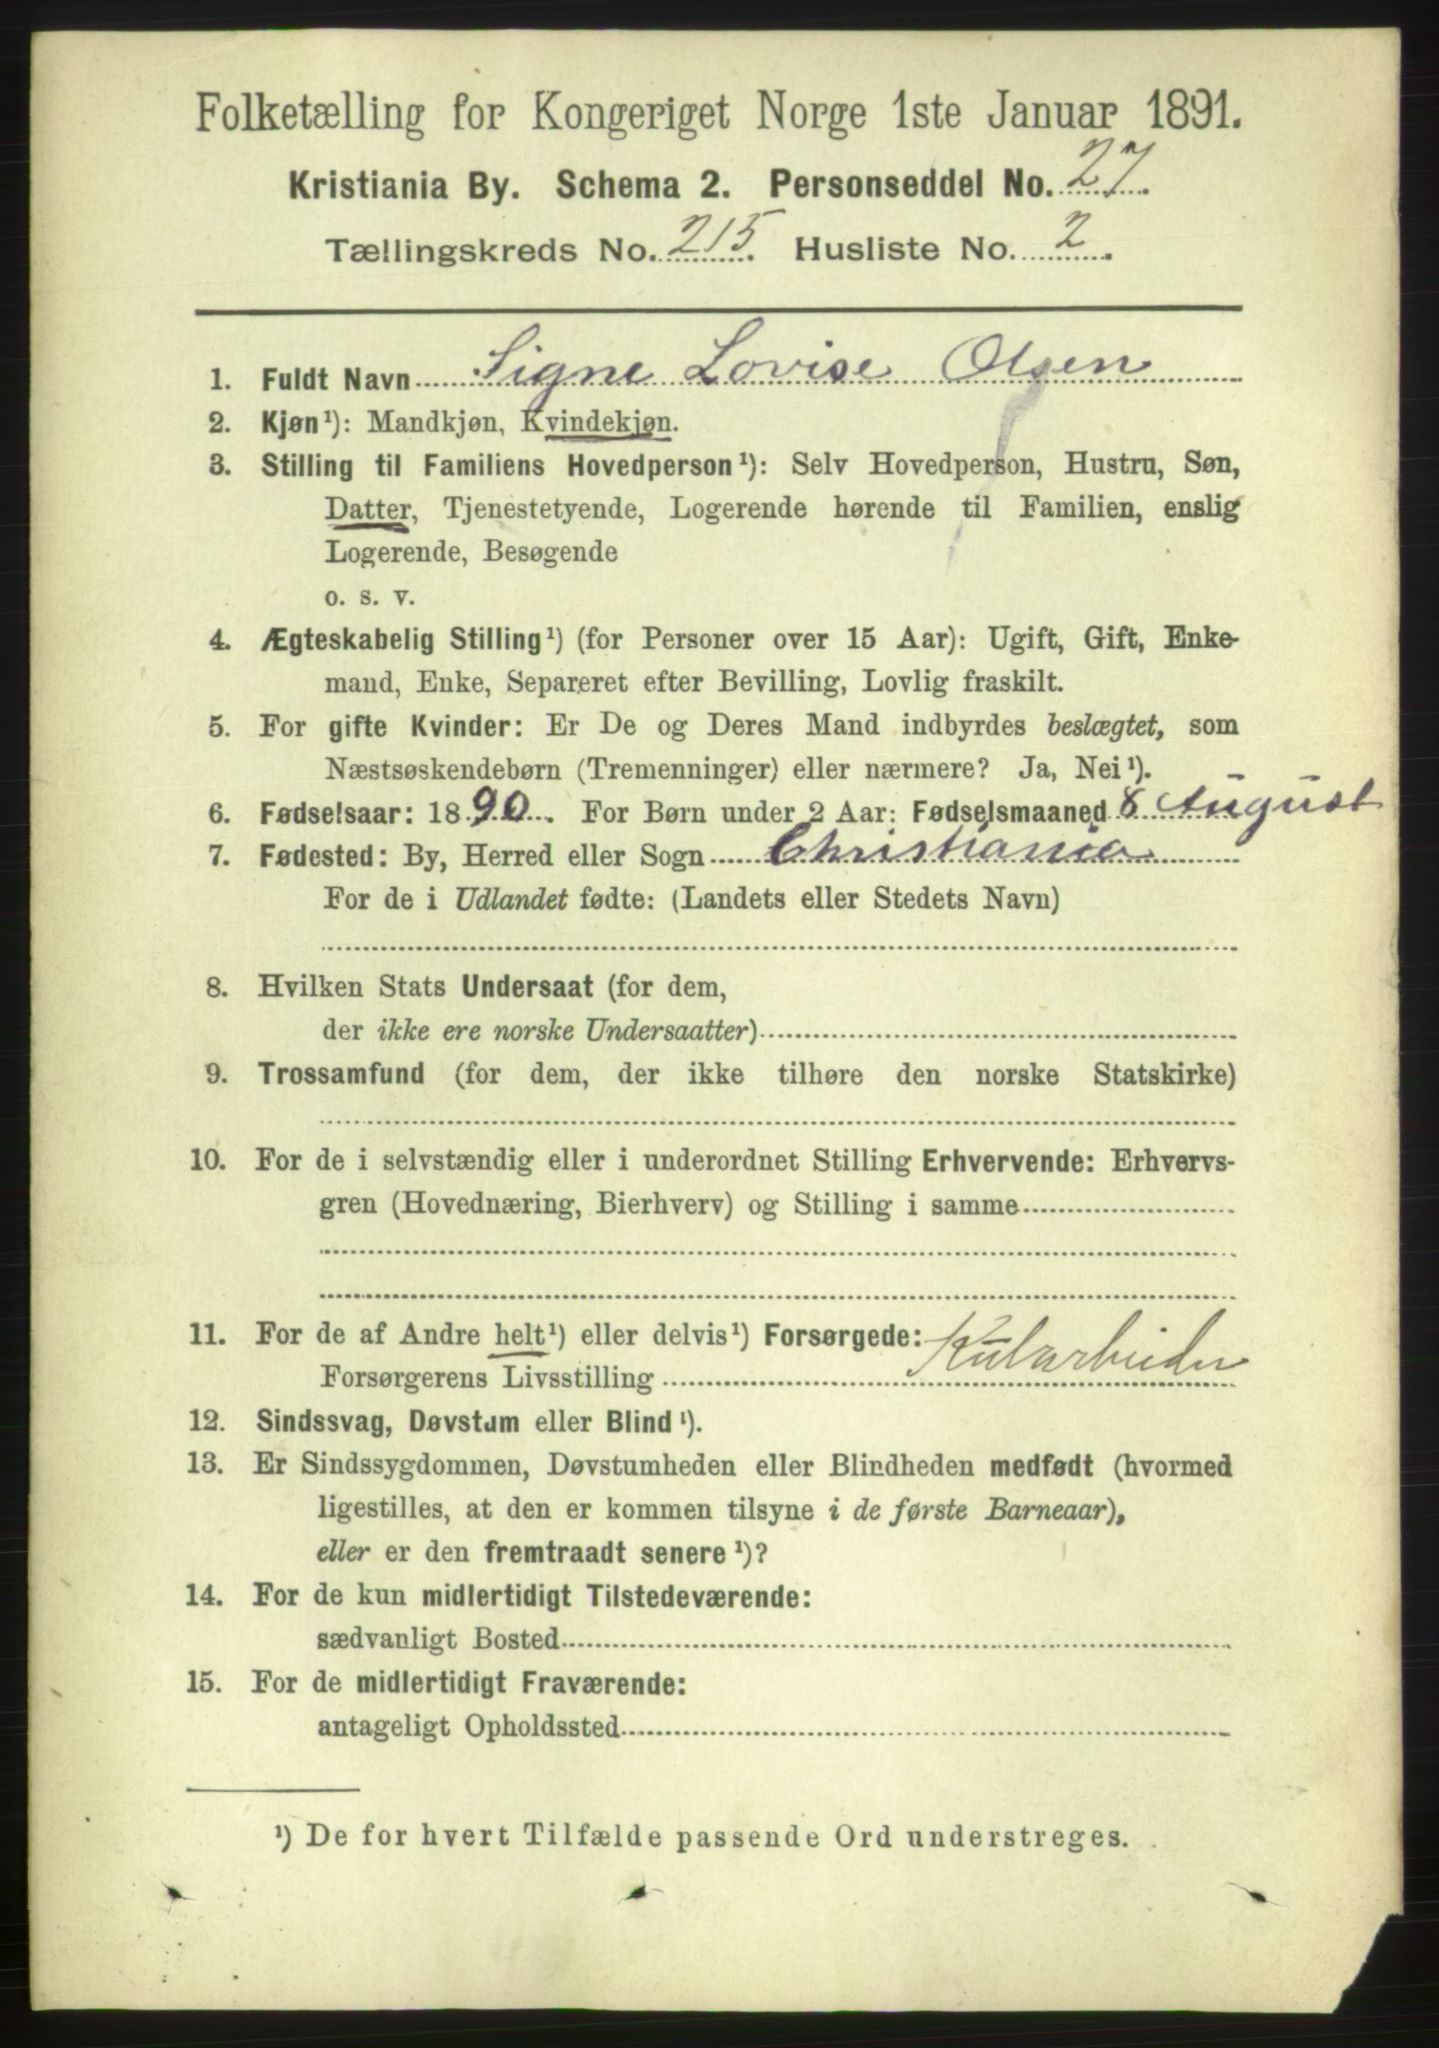 Folketælling for Kongeriget Norge 1ste Januar 1891.
Kristiania By. Schema 2. Personseddel No. 27.
Tællingskreds No. 215. Husliste No. 2.
1. Fuldt Navn Signe Lovise Olsen
2. Kjøn¹): Mandkjøn, Kvindekjøn.
3. Stilling til Familiens Hovedperson¹): Selv Hovedperson, Hustru, Søn,
Datter, Tjenestetyende, Logerende hørende til Familien, enslig
Logerende, Besøgende
o. s. v.
4. Ægteskabelig Stilling¹) (for Personer over 15 Aar): Ugift, Gift, Enke-
mand, Enke, Separeret efter Bevilling, Lovlig fraskilt.
5. For gifte Kvinder: Er De og Deres Mand indbyrdes beslægtet, som
Næstsøskendebørn (Tremenninger) eller nærmere? Ja, Nei¹).
6. Fødselsaar: 1890. For Børn under 2 Aar: Fødselsmaaned 8 August
7. Fødested: By, Herred eller Sogn Christiania
For de i Udlandet fødte: (Landets eller Stedets Navn)
8. Hvilken Stats Undersaat (for dem,
der ikke ere norske Undersaatter)
9. Trossamfund (for dem, der ikke tilhøre den norske Statskirke)
10. For de i selvstændig eller i underordnet Stilling Erhvervende: Erhvervs-
gren (Hovednæring, Bierhverv) og Stilling i samme
11. For de af Andre helt¹) eller delvis¹) Forsørgede:
Forsørgerens Livsstilling Kularbeider
12. Sindssvag, Døvstum eller Blind¹).
13. Er Sindssygdommen, Døvstumheden eller Blindheden medfødt (hvormed
ligestilles, at den er kommen tilsyne i de første Barneaar),
eller er den fremtraadt senere¹)?
14. For de kun midlertidigt Tilstedeværende:
sædvanligt Bosted
15. For de midlertidigt Fraværende:
antageligt Opholdssted
¹) De for hvert Tilfælde passende Ord understreges.